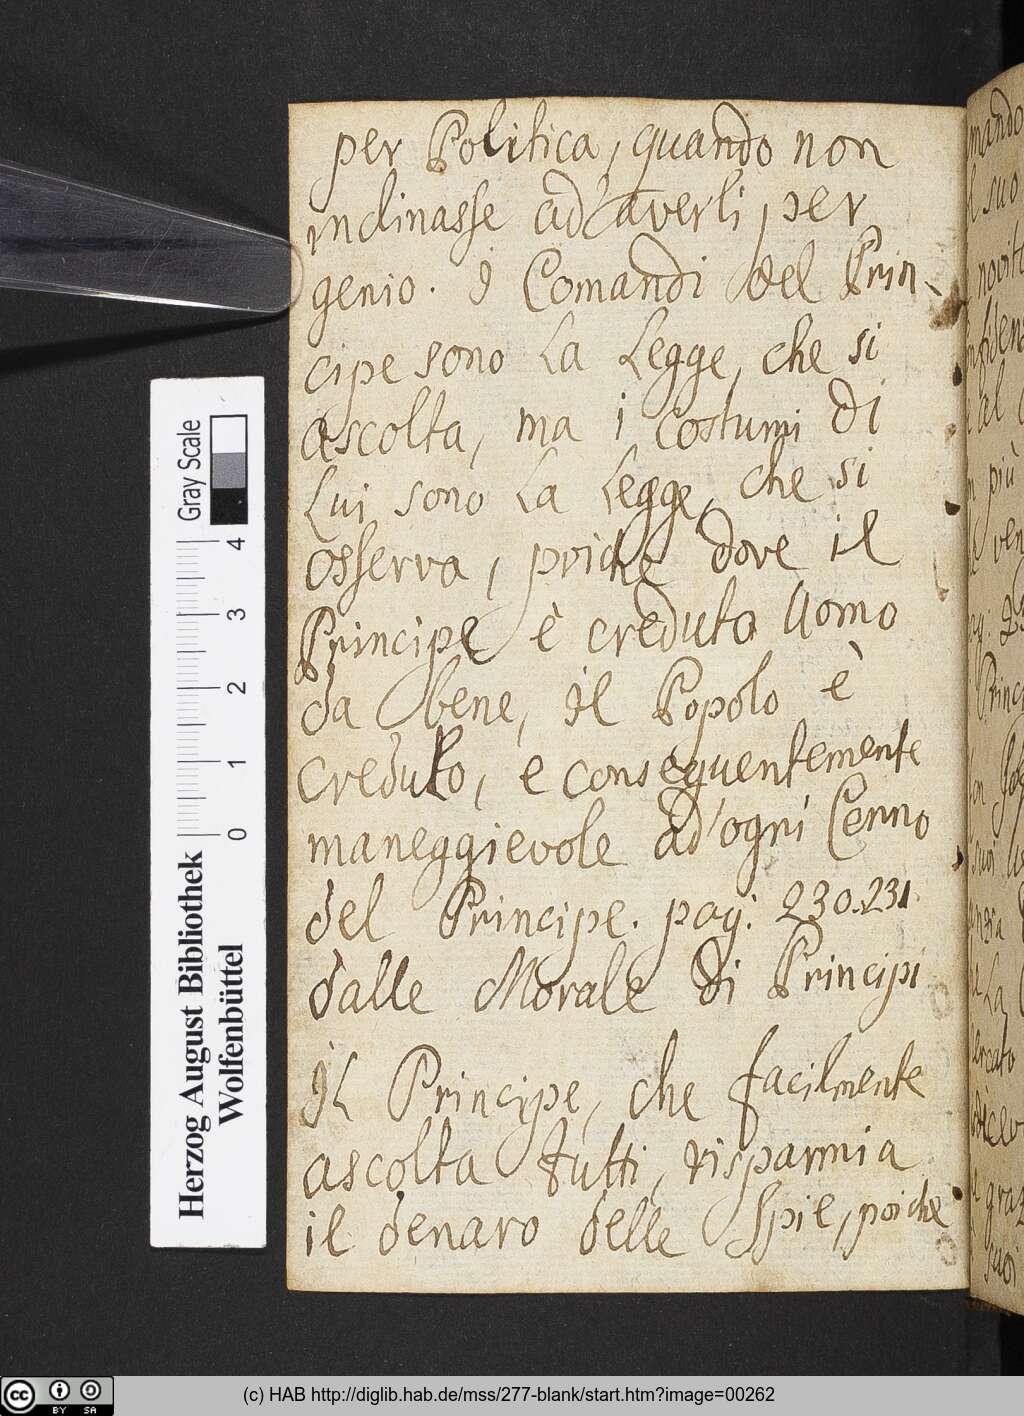 per Politica, quando non
inclinasse ad'averli, per
genio. I Comandi del Prin-
cipe sono la Legge, che si
ascolta, ma i costumi di
Lui sono la Legge, che si
osserva, poiche dove il
Principe è creduto Uomo
da bene, il Popolo è
creduto, e conseguentemente
maneggievole ad'ogni Cenno
del Principe. pag: 230.231.
dalle Morale di Principi
Il Principe, che facilmente
ascolta tutti, risparmia
il denaro delle Spie, poiche
mando
suo
novita
più
ven
Princ
La
Gray Scale
4
3
2
1
0
Herzog August Bibliothek
Wolfenbüttel
cc BY SA
(c) HAB http://diglib.hab.de/mss/277-blank/start.htm?image=00262